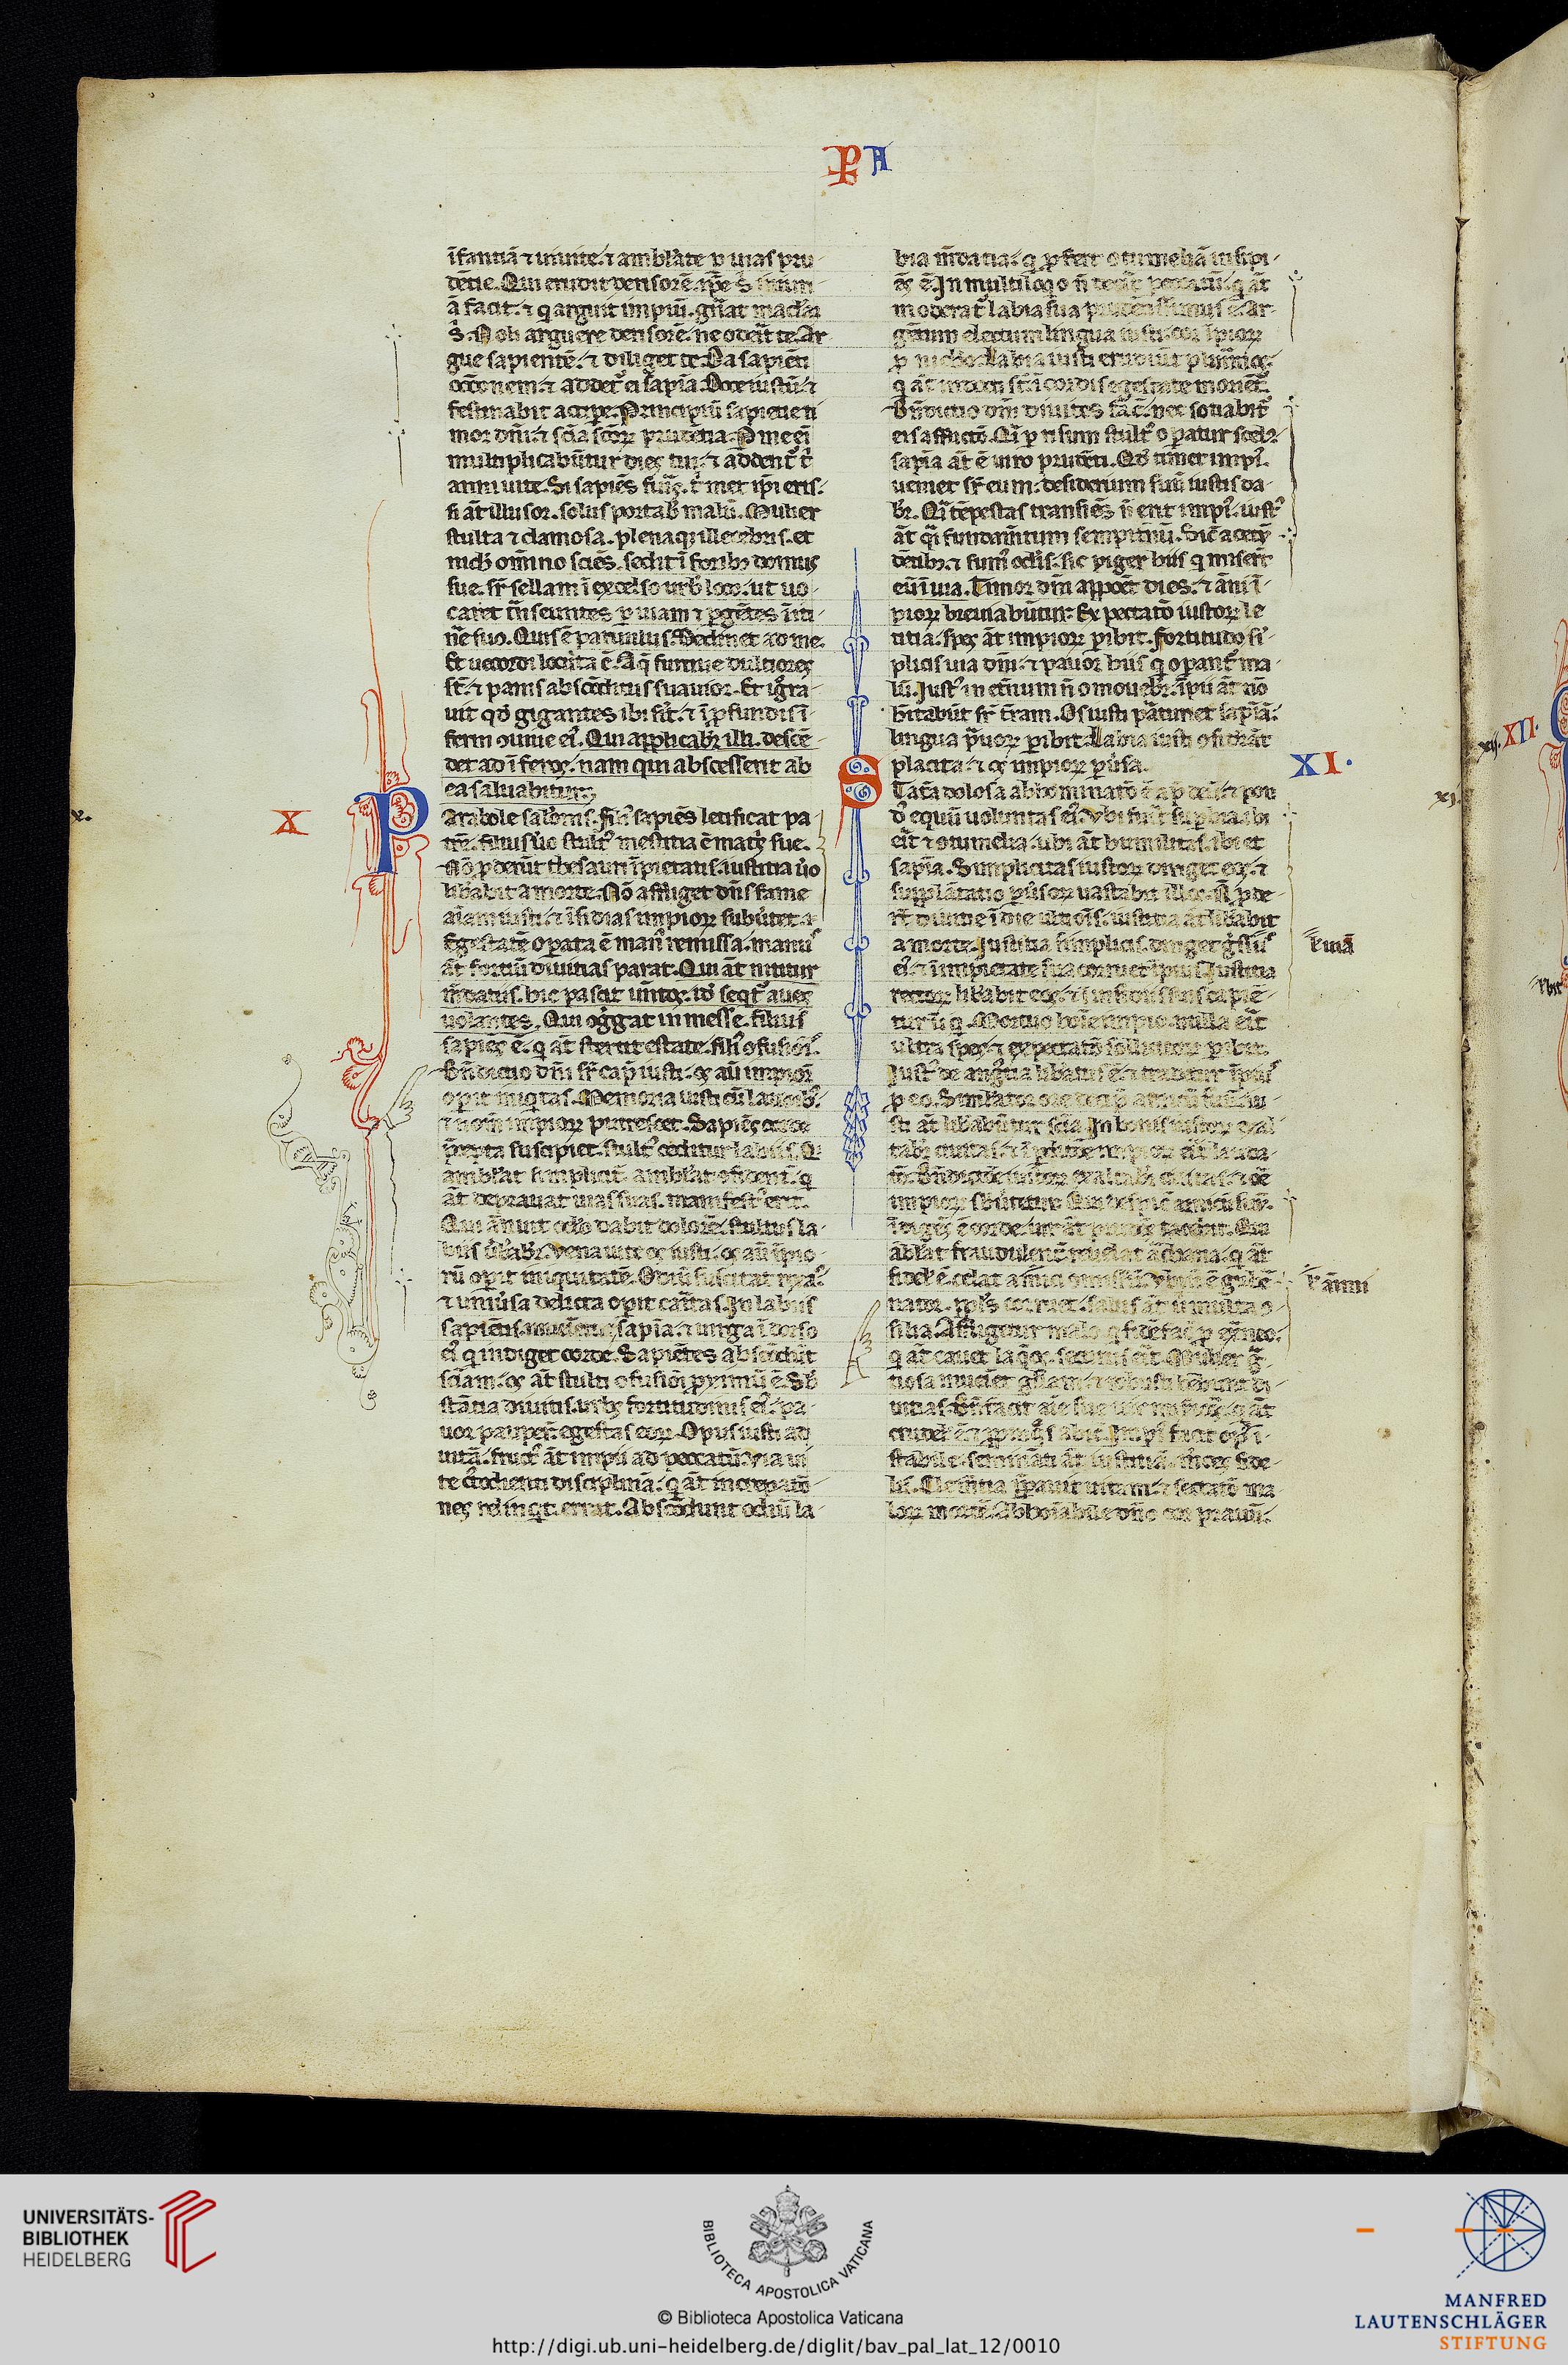 PA
īfantiā ⁊ uiuite. ⁊ amblate p uias pru
dētie. Qui erudit derisorē. ip̄e s̄ iniuri
ā facit. ⁊ q arguit impiū. gn̄at maclā
s̄. Noli arguere derisorē. ne oderit te. Ar
gue sapientē. ⁊ diliget te. Da sapiēti
occōnem. ⁊ addet᷑ ei sapīa. Doce iustū. ⁊
festinabit accipe. Principiū sapientie ti
mor dn̄i. ⁊ sciā scōꝝ prudētia. P me eī
multiplicabūtur dies tui. ⁊ addent᷑ t̄
anni uite. Si sapiēs fu͛is. t̄ met ip̄i eris.
si āt illusor. solus portab malū. Mulier
stulta ⁊ clamosa. plenaq illecebris. et
nichil om̄ino sciēs. sedit ī foribꝫ domus
sue. sr̄ sellam ī excelso urb loco. ut uo
caret trāseuntes p uiam ⁊ pgētes ītī
ne suo. Quis ē paruulus. Declinet ad me.
Et uecordi locuta ē. Aq̄ furtiue dulciores
sr̄. ⁊ panis abscōditus suauior. Et igra
uit qd̄ gigantes ibi sīt. ⁊ ī profundis ī
ferni ouiue eiꝰ. Qui applicabr̄ illi. descē
det ad īferos. nam qui abscesserit ab
ea saluabitur.
X
Parabole salōnis. filiꝰ sapiēs letificat pa
trē. filius uo stultꝰ mestitia ē matris sue.
Nō pderūt thesauri īpietatis. iustitia uo
lib̄abit a morte. Nō affliget dn̄s fame
aīam iusti. ⁊ īsidias impioꝝ subutet
Egestatē opata ē manꝰ remissa. manꝰ
āt fortiū diuitias parat. Qui āt nititur
mdatiis. hic pascit uētos. id seqt᷑ aues
uolantes. Qui oggat in messe. filius
sapies ē. q āt stertit estate. filiꝰ ofusioī.
Bn̄dictio dn̄i sr̄ cap̄ iusti. os aū impioꝝ
opit iniqtas. Memoria iusti cū laudibꝫ.
⁊ nom̄ impioꝝ putrescet. Sapiēs corde
p̄cepta suscipiet. stultꝰ ceditur labiis. Q
amblat simplicit᷑ amblat ofident᷑. q
āt deprauat uias suas. manifestꝰ erit.
Qui ānuit oclo dabit dolorē. stultus la
biis ūbabr̄. Vena uite os iusti. os aū īpio
rū opit iniquitatē. Odiū suscitat rixas.
⁊ uniusa delicta opit caritas. In labiis
sapientis inuenitur sapīa. ⁊ uirga ī dorso
eiꝰ q indiget corde. Sapiētes abscōdūt
sciam. os āt stulti ofusioī pximū ē. Sb
stātia diuitis. urbs fortitudinis eiꝰ. pa
uor paupeꝝ. egestas eoꝝ. Opus iusti ad
uitā. fructꝰ āt impii ad peccatū. Via ui
te custodienti disciplinā. q āt increpatō
nes relinqt. errat. Abscōdunt odiū la
bia mdatia. q pfert otumeliā insipi
ēs ē. In multiloqo n̄ deerit peccatū. q āt
moderat᷑ labia sua prudentissimus ē. Ar
gētum electum lingua iusti. cor īpioꝝ
p nichilo. Labia iusti erudiūt plurimos.
q āt indocti sr̄ ī cordis egestate moriēt᷑.
Bn̄dictio dn̄i diuites fac̄. nec sociabit᷑
eis afflictio. Qī p risum stultꝰ opatur scelꝰ
sapīa āt ē uiro prudēti. Qd̄ timet impiꝰ.
ueniet sr̄ eum. desiderium suū iustis da
br̄. Qī tēpestas transiēs n̄ erit impiꝰ. iustꝰ
āt qī fundamtum sempitnū. Sic̄ acetū
dētibꝫ. ⁊ fumꝰ oclis. sic piger hiis q miserūt
eū ī uia. Timor dn̄i appoēt dies. ⁊ anni ī
pioꝝ breuiabūtur. Expectatō iustoꝝ le
titia. spes āt impioꝝ pibit. fortitudo sī
plicis uia dn̄i. ⁊ pauor hiis q opant᷑ ma
lū. Iustꝰ in et͛num n̄ omouebr̄. īpii āt nō
hītabūt sr̄ tram. Os iusti pāturiet sapīā.
lingua puoꝝ pibit. Labia iusti osidāt
placita. ⁊ os impioꝝ pusa.
XI.
Stat͛a dolosa abhominatō ē ap̄ deū. ⁊ pon
dꝰ equū uoluntas eiꝰ. Vbi fu͛it supbia. ibi
erit ⁊ otumelia. ubi āt humilitas. ibi et
sapīa. Simplicitas iustoꝝ diriget eos. ⁊
supplātatio pusoꝝ uastabit illos. Nō pde
rūt diuitie ī die ultiōis. iustitia āt lib̄abit
a morte. Iustitia simplicis. diriget gressū
eiꝰ. ⁊ ī impietate sua corruet īpius. Iustitia
rectoꝝ lib̄abit eos. ⁊ ī insidiis suis capiē
tur iniq. Mortuo hoīe impio. nulla erit
ultra spes. ⁊ expectatō sollicitoꝝ pibit.
Iustꝰ de angustia lib̄atus ē. ⁊ tradetur īpiꝰ
p eo. Simlator ore decip̄ amicū suū. iu
sti āt lib̄abūtur scīa. In bonis iustoꝝ exal
tabr̄ ciuitas. ⁊ ī pditiōe impioꝝ erit lauda
tō. Bn̄dictiōe iustoꝝ exaltabr̄ ciuitas. ⁊ ore
impioꝝ sbuertetur. Qui despic̄ amicū suū.
īdigēs ē corde. uir āt prudēs tacebit. Qui
āblat fraudulent᷑ reuelat archana. q āt
fidelꝰ ē. celat amici omissū. Vbi n̄ ē gubē
nator. ppls corruet. salus āt ubi multa o
silia. Affligetur malo q fidē fac̄ p extneo.
q āt cauet laqos. securus erit. Mulier gra
tiosa inueniet gliam. ⁊ robusti hēbunt di
uitias. Bn̄facit aīe sue uir misericors. q āt
crudelꝰ ē. ⁊ ppinqs abic̄. Impiꝰ facit opꝰ ī
stabile. seminātī āt iustitiā. m̄ces fide
lis. Clem̄tia pparat uitam. ⁊ sectatō ma
loꝝ mortē. Abhoīabile dn̄o cor prauū.
uiā
animi
x.
xi.
XII.
UNIVERSITÄTS-
BIBLIOTHEK
HEIDELBERG
BIBLIOTECA APOSTOLICA VATICANA
© Biblioteca Apostolica Vaticana
http://digi.ub.uni-heidelberg.de/diglit/bav_pal_lat_12/0010
MANFRED
LAUTENSCHLÄGER
STIFTUNG